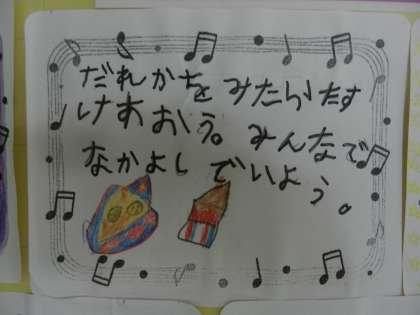 だれかちをみたらたす
けあおう。みんなで
なかよしでいよ
う。